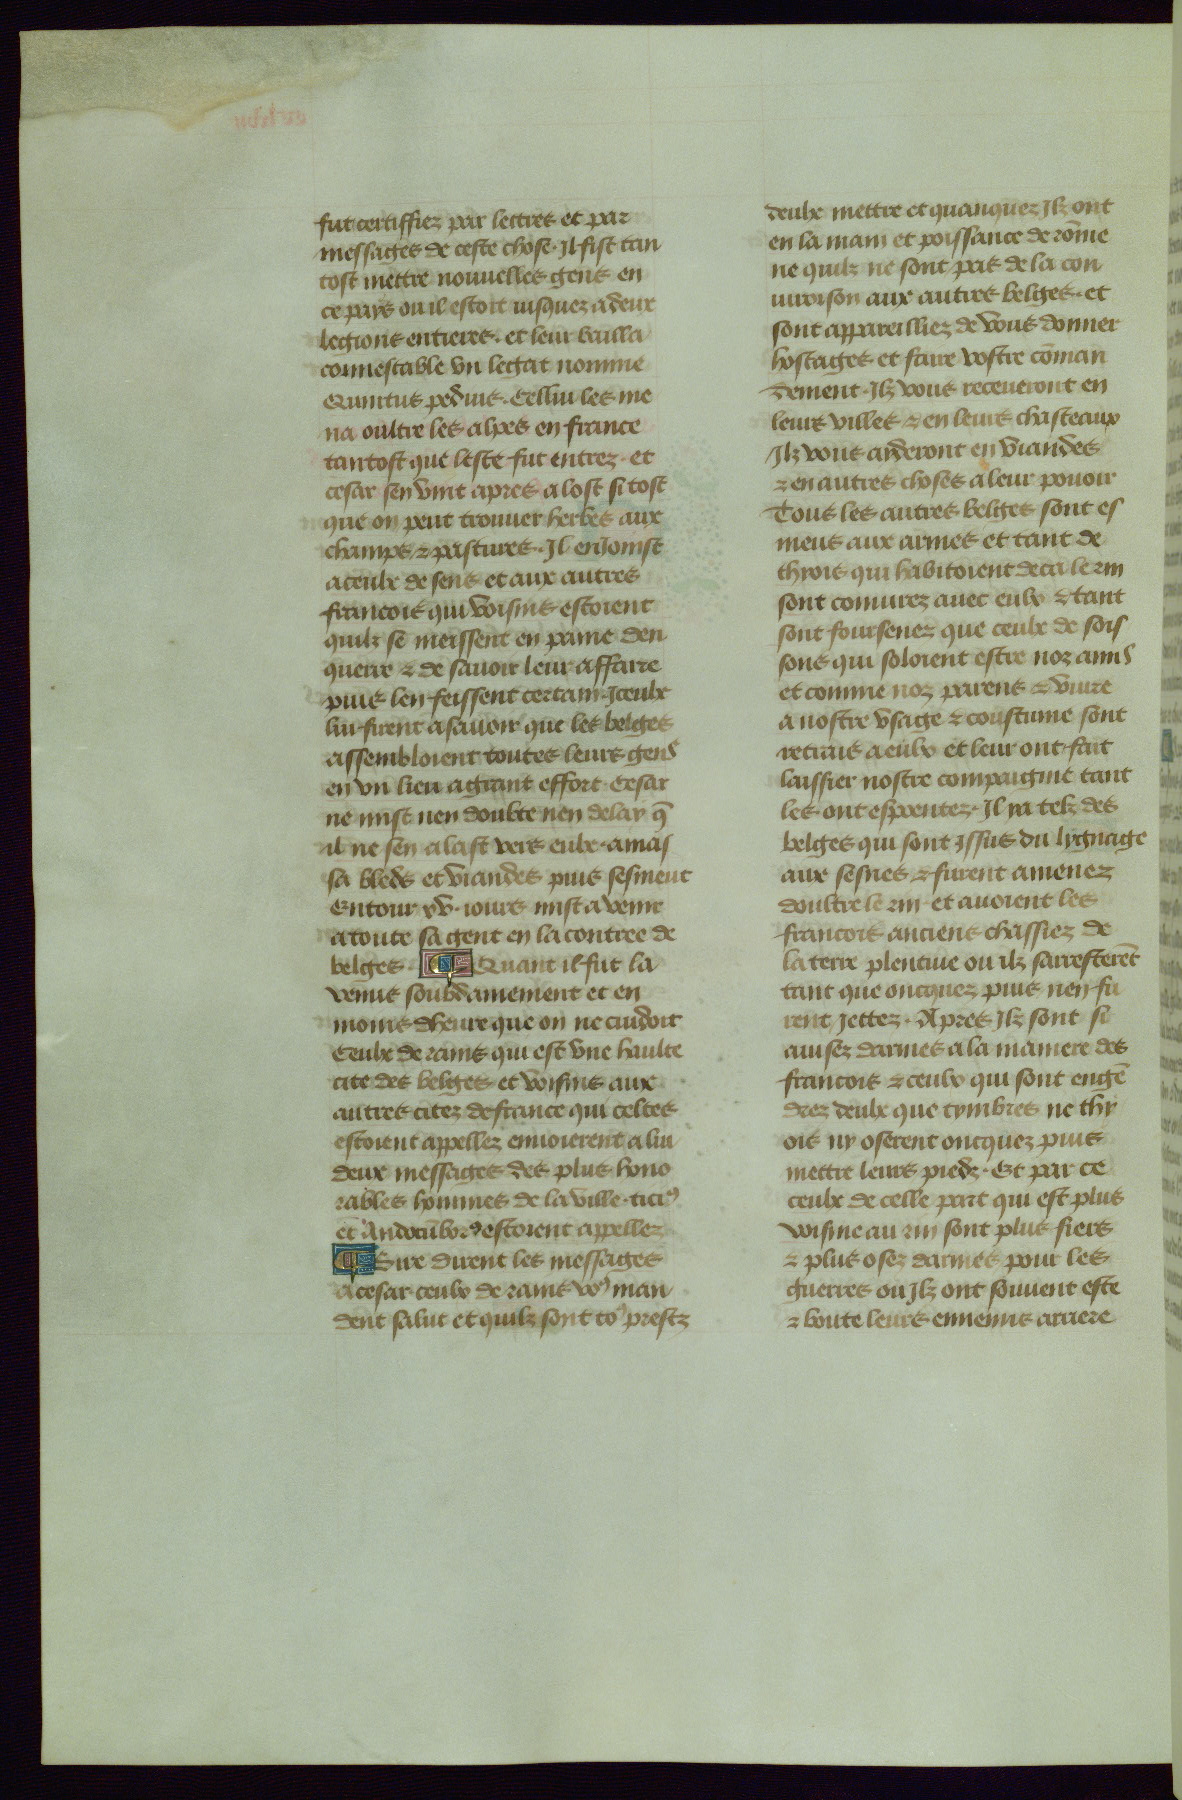 fut certiffiez par lectres et par
messages de ceste chose. Il fist tan
tost mettre nouuelles gens en
ce pays ou il estoit iusquez a deux
legions entieres. et leur bailla
connestable vn legat nomme
Quintus pedius. Cellui les me
na oultre les alpes en france
tantost que leste fut entrez. et
cesar sen vint apres a lost si tost
que on peut trouuer herbes aux
champs & pastures. Il enJoinst
a ceulx de sens et aux autres
francois qui voisins estoient
quilz se meissent en paine den
querre & de sauoir leur affaire
puis len feissent certain. Iceulx
lui firent asauoir que les belges
assembloient toutes leurs gens
en vn lieu a grant effort. Cesar
ne mist nen doubte nen delay q̄
il ne sen alast vers eulx. amas
sa bleds et viandes puis sesmeut
Entour xv. iours mist a venir
a toute sa gent en la contree de
belges. ¶ Quant il fut la
venus soubdainement et en
moins dheure que on ne cuidoit
Ceulx de rains qui est vne haulte
cite des belges et voisins aux
autres citez de france qui celtes
estoient appellez enuoierent a lui
deux messages des plus hono
rables hommes de la ville. ticiꝯ
et Andocūborꝯ estoient appellez
¶ Sire dirent les messages
a cesar ceulx de rains voꝯ man
dent salut et quilz sont toꝯ prestz
deulx mettre et quanquez Ilz ont
en la main et poissance de rōme
ne quilz ne sont pas de la con
iuroison aux autres belges. et
sont appareilliez de vous donner
hostages et faire vostre cōman
dement. Ilz vous receueront en
leurs villes & en leurs chasteaux
Ilz vous aideront en viandes
& en autres choses a leur pouoir
Tous les autres belges sont es
meus aux armes et tant de
thyois qui habitoient deca le rin
sont coniurez auec eulx & tant
sont foursenez que ceulx de sois
sons qui soloient estre noz amis
et comme noz parens & viure
a nostre vsage & coustume sont
retrais a eulx et leur ont fait
laissier nostre compaignie tant
les ont espoentez. Il ya telz des
belges qui sont Issus du lygnage
aux sesnes & furent amenez
doultre le rin et auoient les
francois anciens chassiez de
la terre plentiue ou ilz sarresterēt
tant que oncquez puis nen fu
rent Jettez. Apres Ilz sont si
auisez darmes a la maniere des
francois & ceulx qui sont engē
drez deulx que tymbres ne thy
ois ny oserent oncquez puis
mettre leurs piedz. Et par ce
ceulx de celle part qui est plus
voisine au rin sont plus fiers
& plus osez darmes pour les
guerres ou Ilz ont souuent este
& boute leurs ennemis arriere